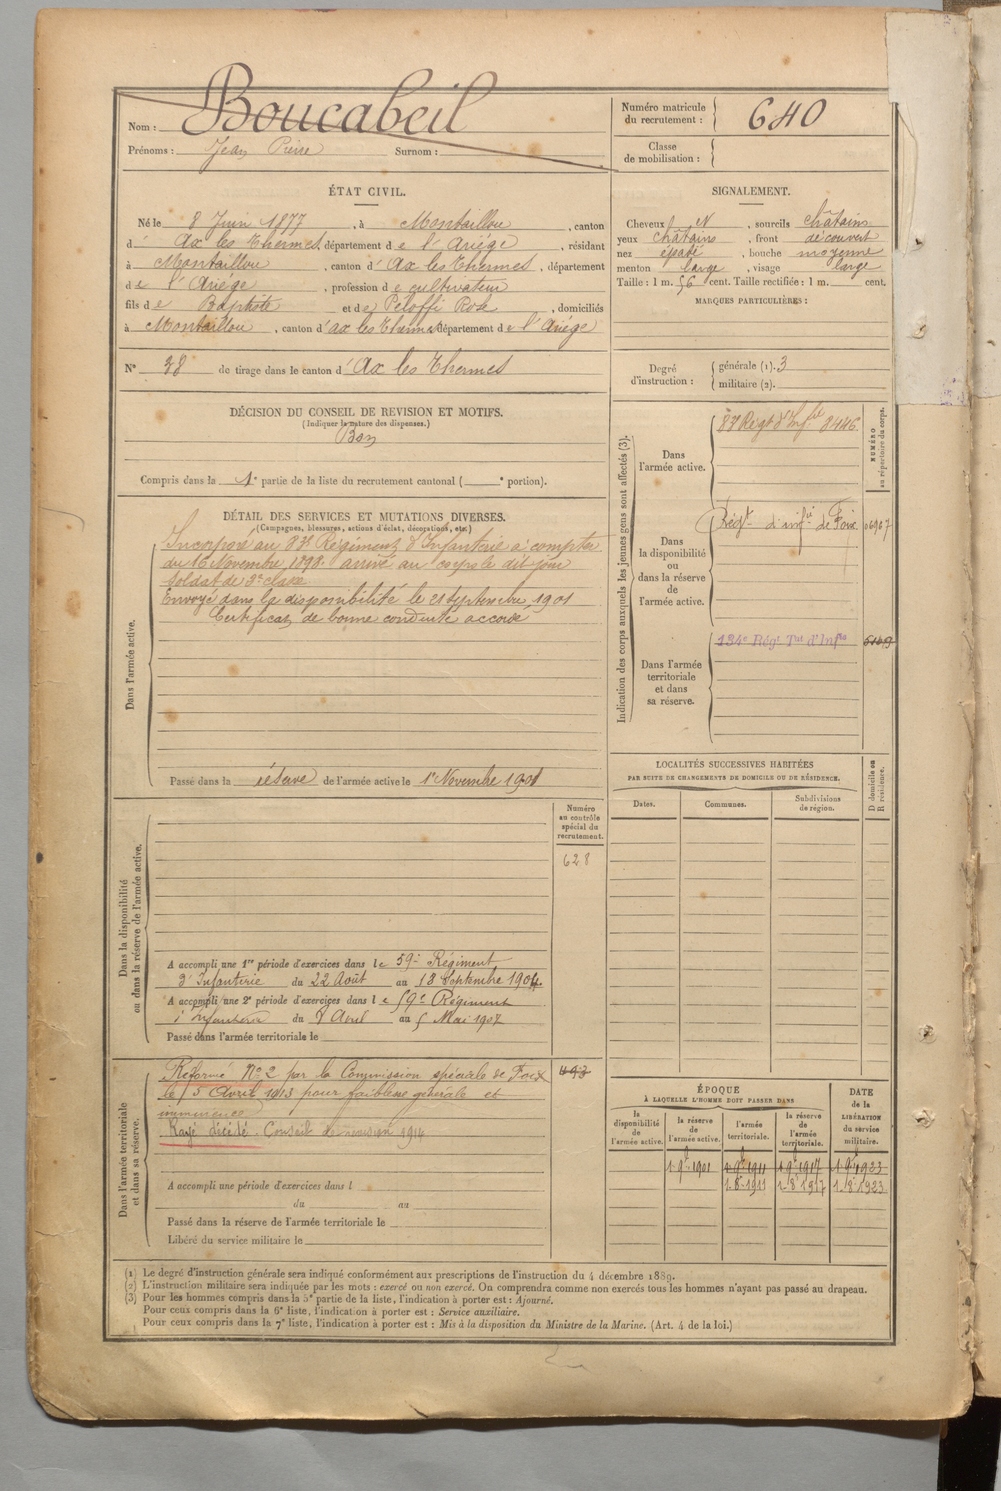 Nom : Boucabeil
Prénoms : Jean Pierre Surnom :
Numéro matricule du recrutement : 640
Classe de mobilisation :
ÉTAT CIVIL.
Né le 8 Juin 1877, à Montaillou, canton
d' Ax les Thermes, département de l'Ariége, résidant
à Montaillou, canton d' Ax les Thermes, département
de l'Ariége, profession de cultivateur
fils de Baptiste et de Peloffi Rose, domiciliés
à Montaillou, canton d'ax les Thermes département de l'Ariége
N° 38 de tirage dans le canton d' Ax les Thermes
SIGNALEMENT.
Cheveux N, sourcils châtains
yeux châtains, front découvert
nez épaté, bouche moyenne
menton large, visage large
Taille : 1 m. 56 cent. Taille rectifiée : 1 m. cent.
MARQUES PARTICULIÈRES :
Degré d'instruction : générale (1). 3
militaire (2).
DÉCISION DU CONSEIL DE REVISION ET MOTIFS.
(Indiquer la nature des dispenses.)
Bon
Compris dans la 1e partie de la liste du recrutement cantonal ( e portion).
DÉTAIL DES SERVICES ET MUTATIONS DIVERSES.
(Campagnes, blessures, actions d'éclat, décorations, etc.)
Dans l'armée active.
Incorporé au 83e Régiment d'Infanterie à compter
du 16 Novembre 1898. arrivé au corps le dit jour
soldat de 2e classe
Envoyé dans la disponibilité le 21 septembre 1901
Certificat de bonne conduite accordé
Passé dans la réserve de l'armée active le 1er Novembre 1901
Indication des corps auxquels les jeunes gens sont affectés (3).
NUMÉRO au répertoire du corps.
Dans l'armée active.
83 Régt d'Infie 8446
Dans la disponibilité ou dans la réserve de l'armée active.
Régt d'infie de Foix 06967
Dans l'armée territoriale et dans sa réserve.
134e Régt Tal d'Infie
LOCALITÉS SUCCESSIVES HABITÉES
PAR SUITE DE CHANGEMENTS DE DOMICILE OU DE RÉSIDENCE.
Dates. Communes. Subdivisions de région. D domicile ou R résidence.
Dans la disponibilité ou dans la réserve de l'armée active.
Numéro au contrôle spécial du recrutement.
628
A accompli une 1re période d'exercices dans le 59e Régiment
d'Infanterie du 22 Août au 18 Septembre 1904.
A accompli une 2e période d'exercices dans le 59e Régiment
d'Infanterie du 8 Avril au 5 Mai 1907
Passé dans l'armée territoriale le
Dans l'armée territoriale et dans sa réserve.
Réformé No 2 par la Commission spéciale de Foix 493
le 15 Avril 1913 pour faiblesse générale et
imminence
Rayé décidé Conseil de revision 1914
A accompli une période d'exercices dans l
du au
Passé dans la réserve de l'armée territoriale le
Libéré du service militaire le
ÉPOQUE
À LAQUELLE L'HOMME DOIT PASSER DANS
la disponibilité de l'armée active. la réserve de l'armée active. l'armée territoriale. la réserve de l'armée territoriale. DATE de la LIBÉRATION du service militaire.
1 9b 1901 1 9b 1911 1 9b 1917 1 9b 1923
1.8.1911 1.8.1917 1.8.1923
(1) Le degré d'instruction générale sera indiqué conformément aux prescriptions de l'instruction du 4 décembre 1889.
(2) L'instruction militaire sera indiquée par les mots : exercé ou non exercé. On comprendra comme non exercés tous les hommes n'ayant pas passé au drapeau.
(3) Pour les hommes compris dans la 5e partie de la liste, l'indication à porter est : Ajourné.
Pour ceux compris dans la 6e liste, l'indication à porter est : Service auxiliaire.
Pour ceux compris dans la 7e liste, l'indication à porter est : Mis à la disposition du Ministre de la Marine. (Art. 4 de la loi.)